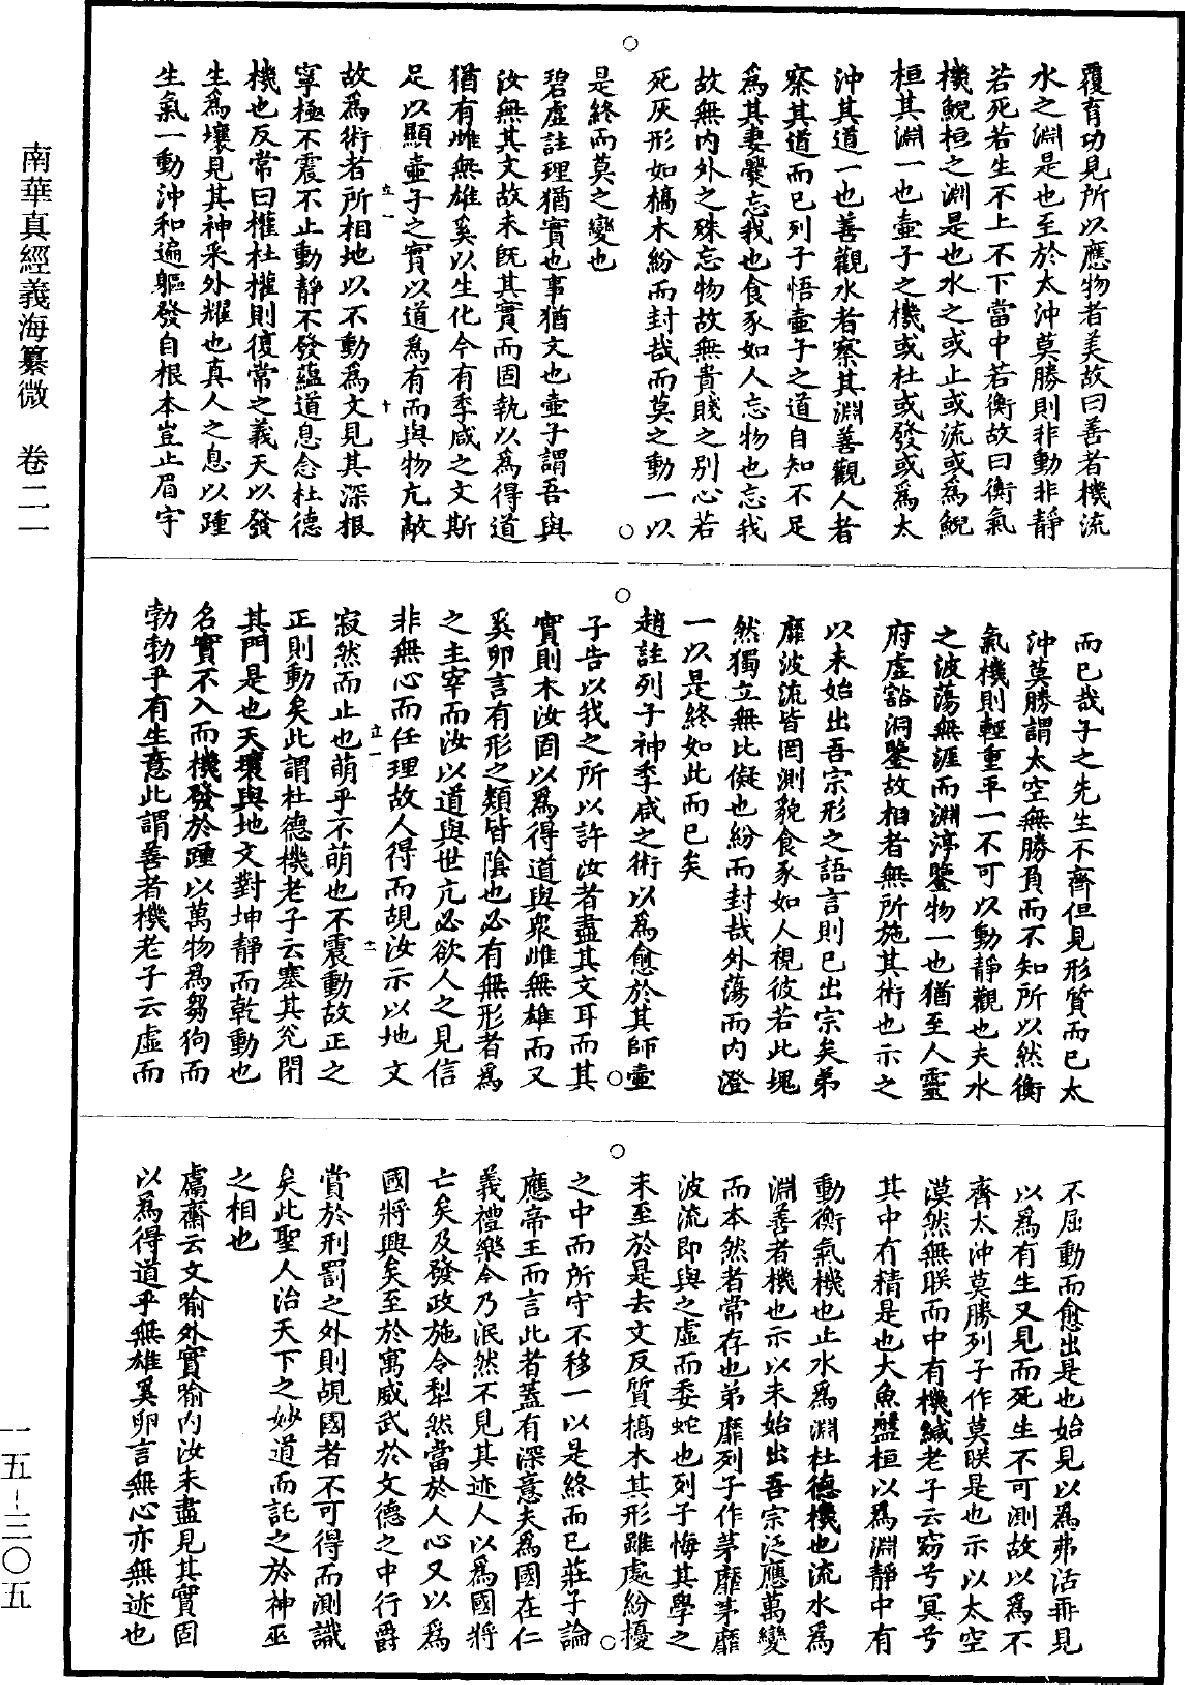 南華真經義海纂微　卷二一
一五-三〇五
覆育功見所以應物者美故曰善者機流
水之淵是也至於太沖莫勝則非動非靜
若死若生不上不下當中若衡故曰衡氣
機鯢桓之淵是也水之或止或流或為鯢
桓其淵一也壺子之機或杜或發或為太
沖其道一也善觀水者察其淵善觀人者
察其道而已列子悟壺子之道自知不足
為其妻爨忘我也食豕如人忘物也忘我
故無內外之殊忘物故無貴賤之別心若
死灰形如槁木紛而封哉而莫之動一以
是終而莫之變也
碧虛註理猶實也事猶文也壺子謂吾與
汝無其文故未既其實而固執以為得道
猶有雌無雄奚以生化今有季咸之文斯
足以顯壺子之實以道為有而與物亢敵
故為術者所相地以不動為文見其深根
寧極不震不止動靜不發蘊道息念杜德
機也反常曰權杜權則復常之義天以發
生為壤見其神采外耀也真人之息以踵
生氣一動沖和遍軀發自根本豈止眉宇
而已哉子之先生不齊但見形質而已太
沖莫勝謂太空無勝負而不知所以然衡
氣機則輕重平一不可以動靜觀也夫水
之波蕩無涯而淵渟鑒物一也猶至人靈
府虛豁洞鑒故相者無所施其術也示之
以未始出吾宗形之語言則已出宗矣弟
靡波流皆罔測貌食豕如人視彼若此塊
然獨立無比儗也紛而封哉外蕩而內澄
一以是終如此而已矣
趙註列子神季咸之術以為愈於其師壺
子告以我之所以許汝者盡其文耳而其
實則未汝固以為得道與眾雌無雄而又
奚卵言有形之類皆陰也必有無形者為
之主宰而汝以道與世亢必欲人之見信
非無心而任理故人得而覘汝示以地文
寂然而止也萌乎不萌也不震動故正之
正則動矣此謂杜德機老子云塞其兌閉
其門是也天壤與地文對坤靜而乾動也
名實不入而機發於踵以萬物為芻狗而
勃勃乎有生意此謂善者機老子云虛而
不屈動而愈出是也始見以為弗活再見
以為有生又見而死生不可測故以為不
齊太沖莫勝列子作莫朕是也示以太空
漠然無朕而中有機緘老子云窈兮冥兮
其中有精是也大魚盤桓以為淵靜中有
動衡氣機也止水為淵杜德機也流水為
淵善者機也示以未始出吾宗泛應萬變
而本然者常存也弟靡列子作茅靡茅靡
波流即與之虛而委蛇也列子悔其學之
未至於是去文反質槁木其形雖處紛擾
之中而所守不移一以是終而已莊子論
應帝王而言此者蓋有深意夫為國在仁
義禮樂今乃泯然不見其迹人以為國將
亡矣及發政施令犁然當於人心又以為
國將興矣至於寓威武於文德之中行爵
賞於刑罰之外則覘國者不可得而測識
矣此聖人治天下之妙道而託之於神巫
之相也
鬳齋云文喻外實喻內汝未盡見其實固
以為得道乎無雄奚卵言無心亦無迹也